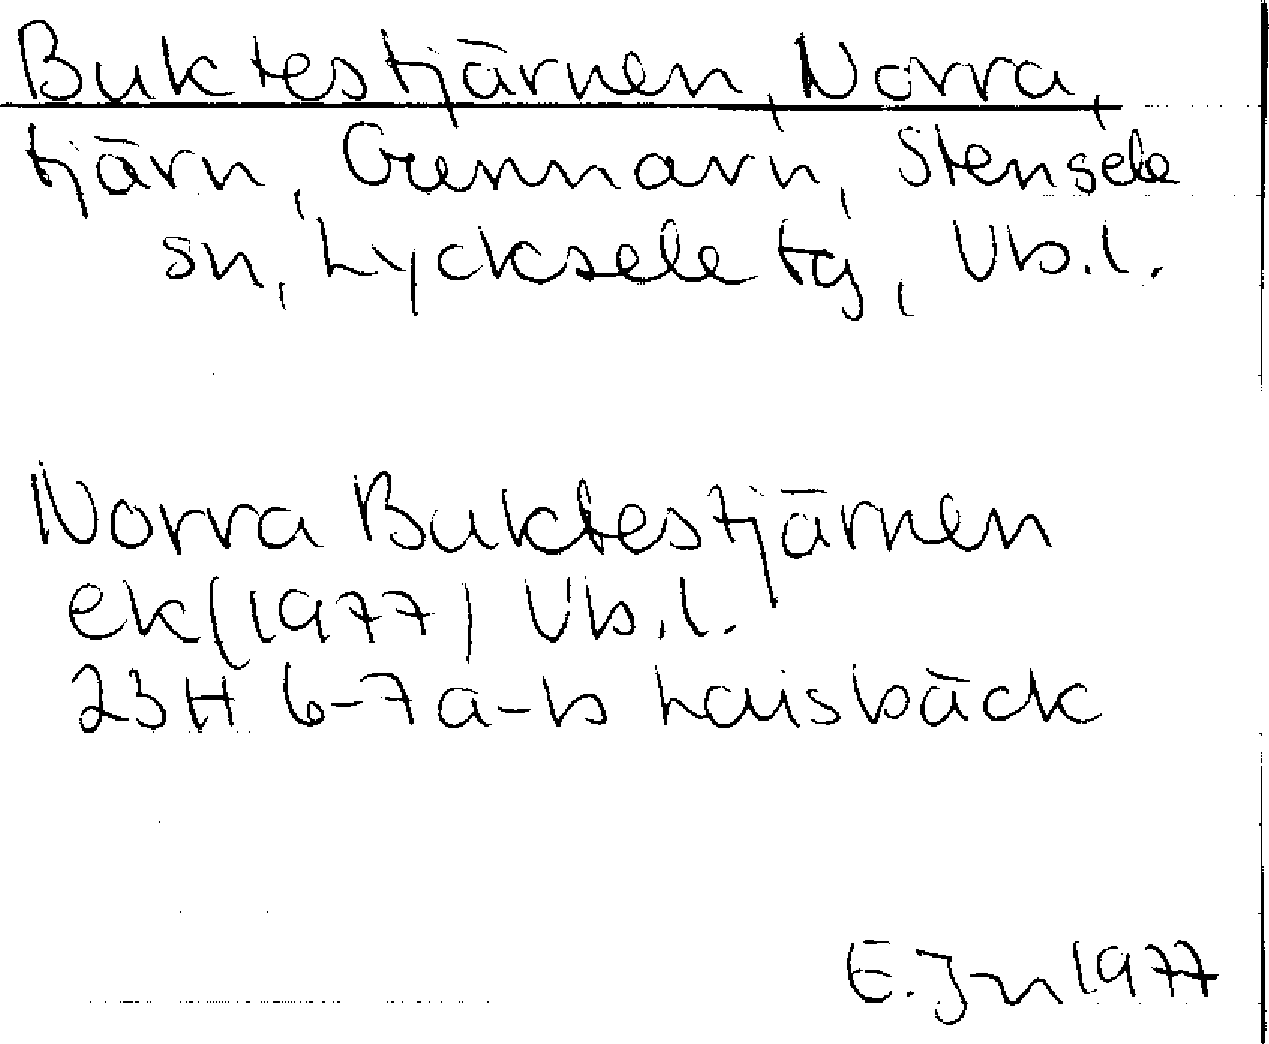 Buktestjärnen, Norra,
tjärn, Gunnarn, Stensele
sn, Lycksele tg, Vb.l.
Norra Buktestjärnen
ek(1977) Vb.l.
23H 6-7a-b Laisbäck
E.Jn 1977